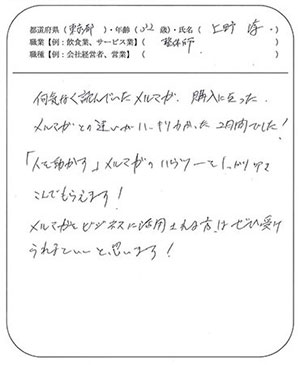 都道府県(東京都)・年齢(32歳)・氏名(上野 )
職業【例:飲食業、サービス業】(整体師)
職種【例:会社経営者、営業】( )
何気なく読んでいたメルマガ、購入に至った
メルマガとの違いがハッキリわかった2日間でした!
「人を動かす」メルマガのノウハウをしっかりと
こんでもらえます!
メルマガをビジネスに活用される方はぜひ受け
られていいと思います!